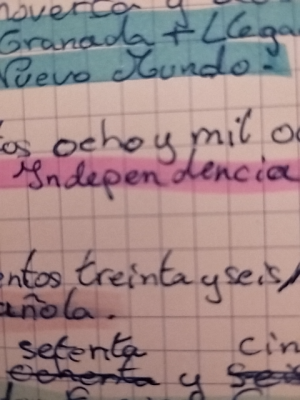 Granada + Llega
Nuevo Mundo.
os ocho y mil o
Independencia
entos treinta y seis/
añola.
setenta cin
ochenta y seis